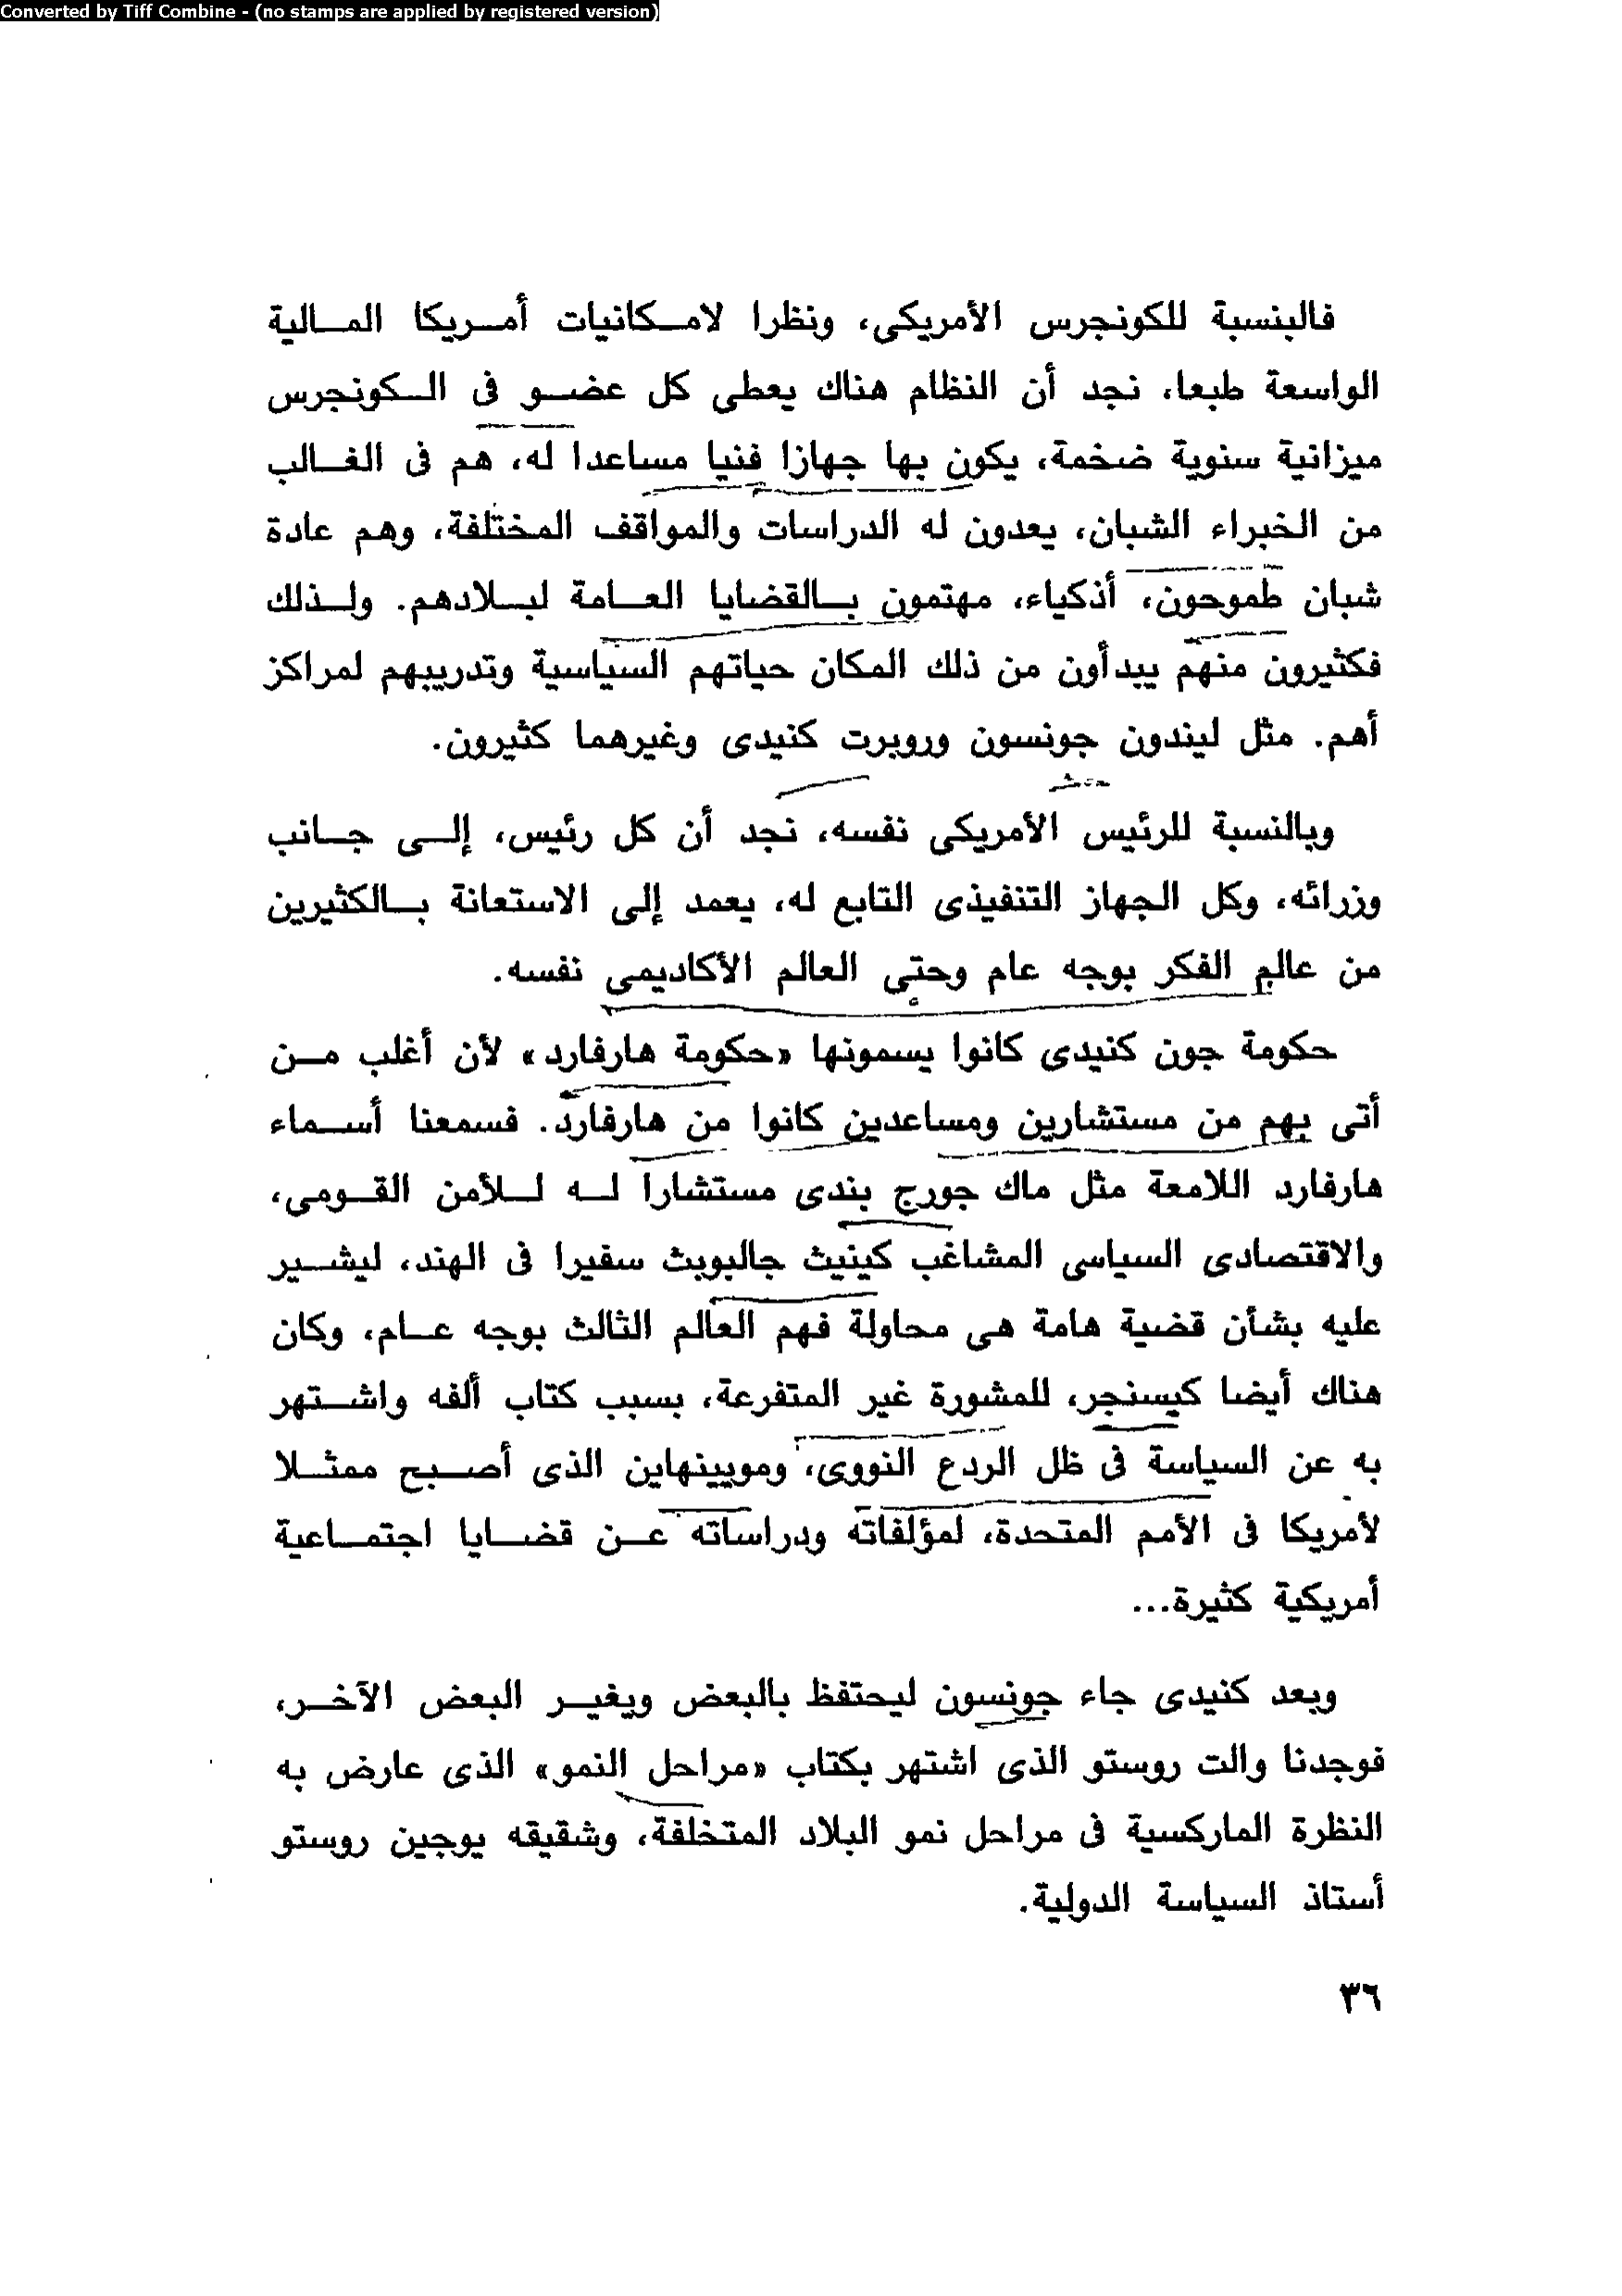 Converted by Tiff Combine - (no stamps are applied by registered version)
فالبنسبة للكونجرس الأمريكى، ونظرا لامكانيات أمريكا المالية
الواسعة طبعا، نجد أن النظام هناك يعطى كل عضو فى الكونجرس
ميزانية سنوية ضخمة، يكون بها جهازا فنيا مساعدا له، هم فى الغالب
من الخبراء الشبان، يعدون له الدراسات والمواقف المختلفة، وهم عادة
شبان طموحون، أذكياء، مهتمون بالقضايا العامة لبلادهم. ولذلك
فكثيرون منهم يبدأون من ذلك المكان حياتهم السياسية وتدريبهم لمراكز
أهم. مثل ليندون جونسون وروبرت كنيدى وغيرهما كثيرون.
وبالنسبة للرئيس الأمريكى نفسه، نجد أن كل رئيس، إلى جانب
وزرائه، وكل الجهاز التنفيذى التابع له، يعمد إلى الاستعانة بالكثيرين
من عالم الفكر بوجه عام وحتى العالم الأكاديمى نفسه.
حكومة جون كنيدى كانوا يسمونها «حكومة هارفارد» لأن أغلب من
أتى بهم من مستشارين ومساعدين كانوا من هارفارد. فسمعنا أسماء
هارفارد اللامعة مثل ماك جورج بندى مستشارا له للأمن القومى،
والاقتصادى السياسى المشاغب كينيث جالبويث سفيرا فى الهند، ليشير
عليه بشأن قضية هامة هى محاولة فهم العالم الثالث بوجه عام، وكان
هناك أيضا كيسنجر، للمشورة غير المتفرعة، بسبب كتاب ألفه واشتهر
به عن السياسة فى ظل الردع النووى، وموينيهاين الذى أصبح ممثلا
لأمريكا فى الأمم المتحدة، لمؤلفاته ودراساته عن قضايا اجتماعية
أمريكية كثيرة...
وبعد كنيدى جاء جونسون ليحتفظ بالبعض ويغير البعض الآخر،
فوجدنا والت روستو الذى اشتهر بكتاب «مراحل النمو» الذى عارض به
النظرة الماركسية فى مراحل نمو البلاد المتخلفة، وشقيقه يوجين روستو
أستاذ السياسة الدولية.
٣٦